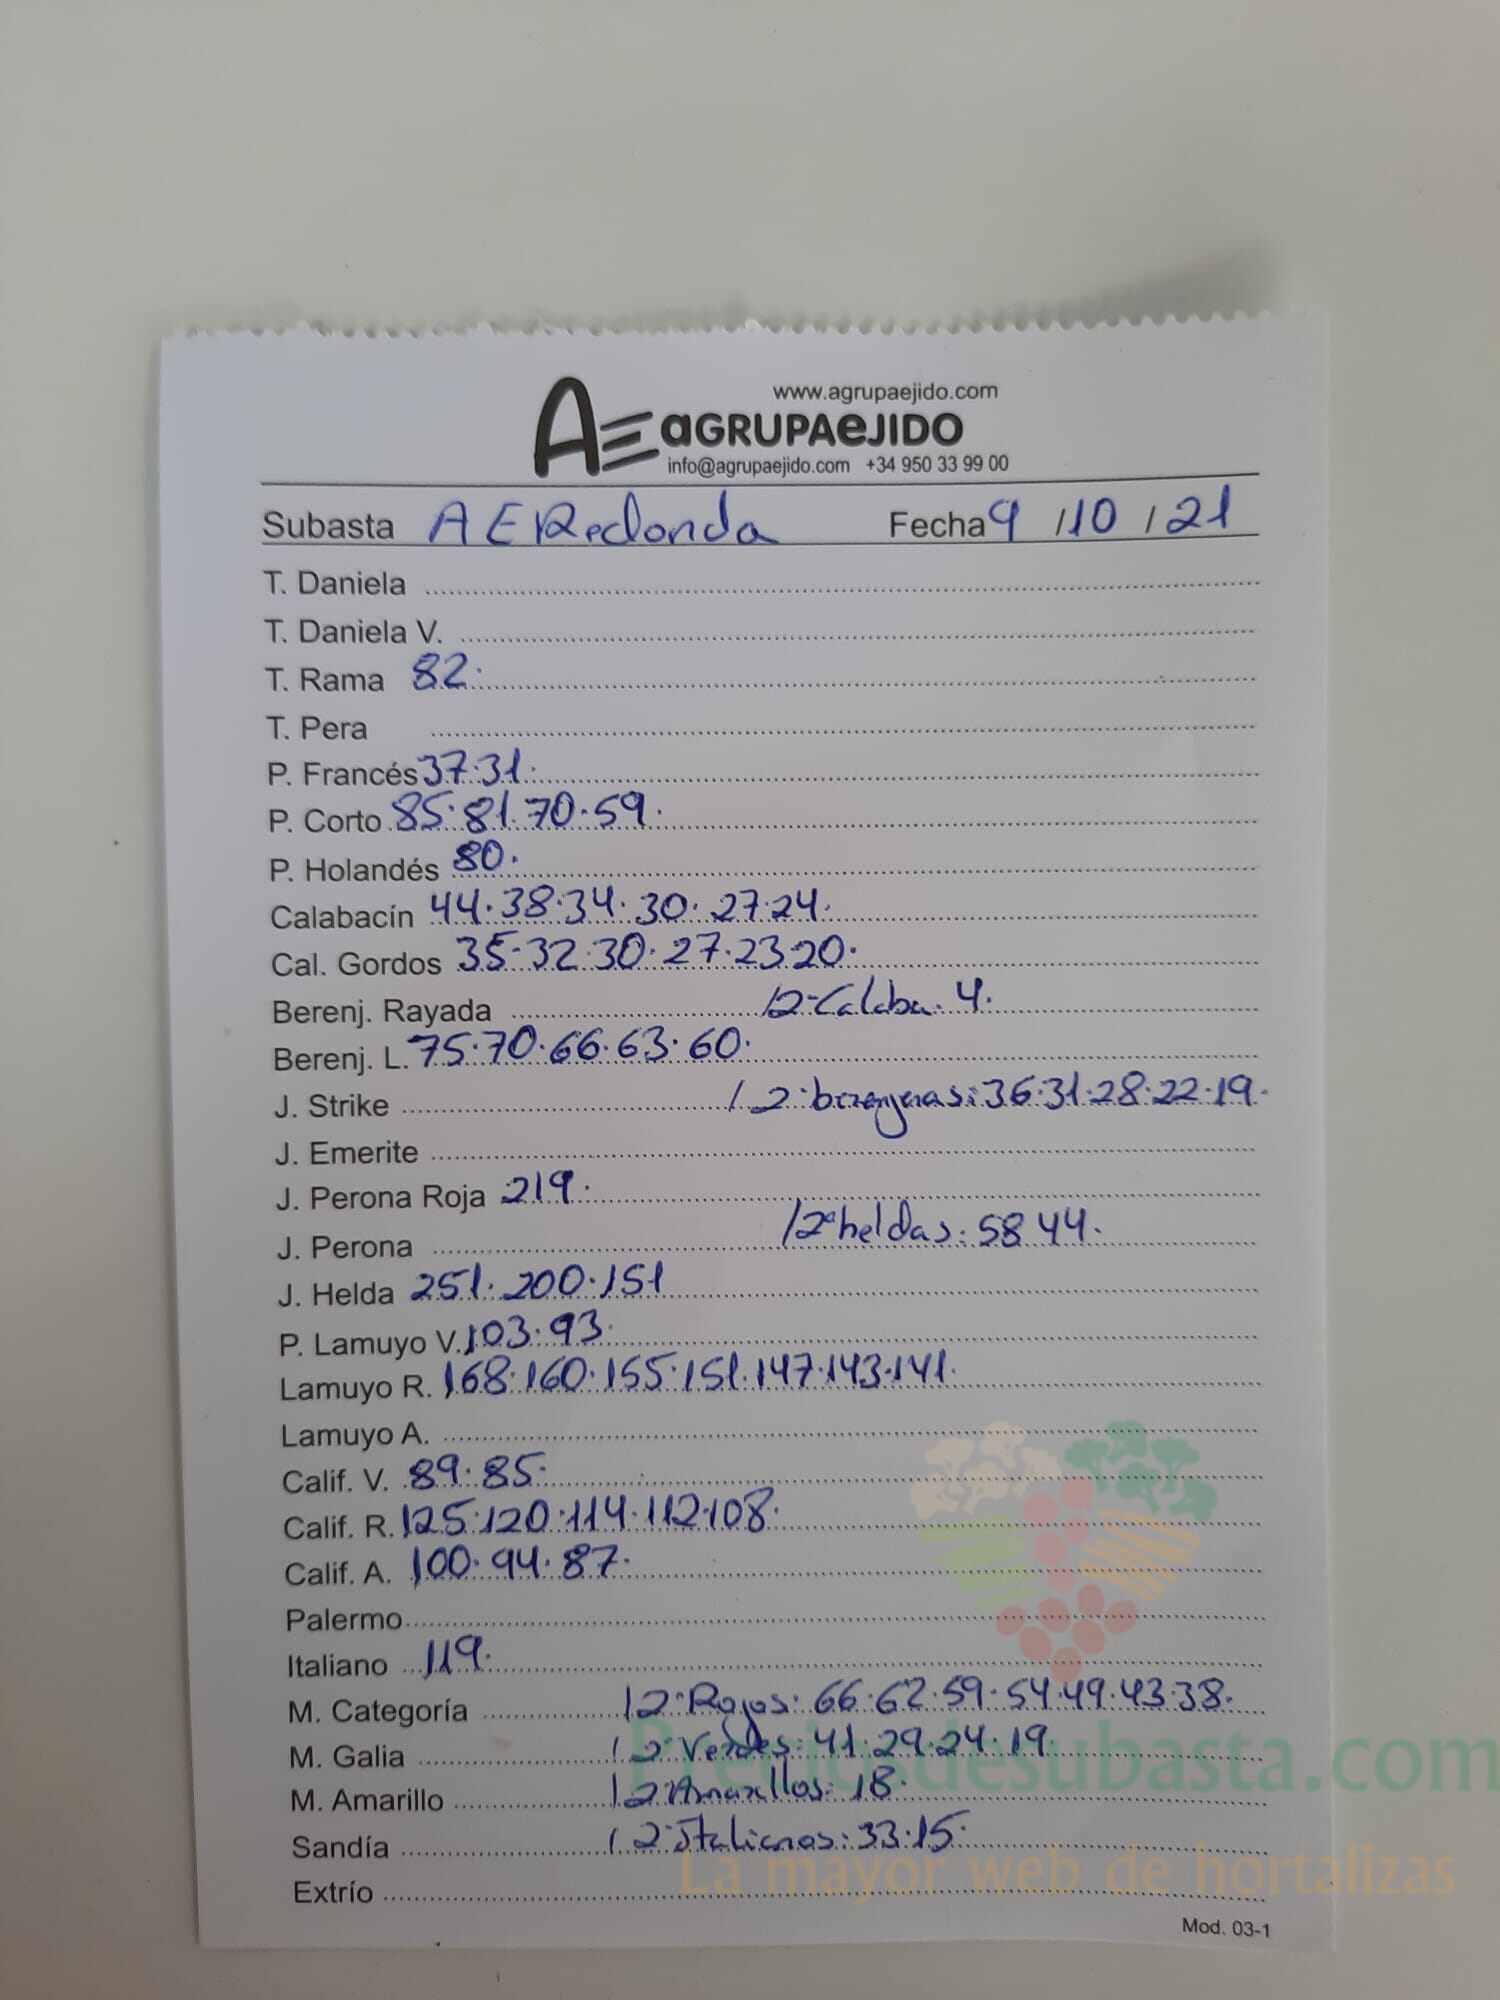 www.agrupaejido.com
AE aGRUPAeJIDO
info@agrupaejido.com +34 950 33 99 00
Subasta AE Redonda Fecha 9 / 10 / 21
T. Daniela
T. Daniela V.
T. Rama 82.
T. Pera
P. Francés 37.31.
P. Corto 85.81.70.59.
P. Holandés 80.
Calabacín 44.38.34.30.27.24.
Cal. Gordos 35.32.30.27.23.20.
Berenj. Rayada /2ª Calaba. 4.
Berenj. L. 75.70.66.63.60.
J. Strike /2ª berenjenas: 36.31.28.22.19.
J. Emerite
J. Perona Roja 219.
J. Perona /2ª heldas: 58 44.
J. Helda 251.200.151
P. Lamuyo V. 103.93.
Lamuyo R. 168.160.155.151.147.143.141.
Lamuyo A.
Calif. V. 89.85.
Calif. R. 125.120.114.112.108.
Calif. A. 100.94.87.
Palermo
Italiano 119.
M. Categoría /2ª Rojos: 66.62.59.54.49.43.38.
M. Galia /2ª Verdes: 41.29.24.19.
Preciosdesubasta.com
M. Amarillo /2ª Amarillos: 18.
Sandía /2ª Italianos: 33.15.
La mayor web de hortalizas
Extrío
Mod. 03-1